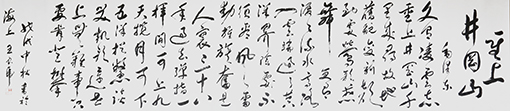 重上
井冈山
毛泽东
久有凌云志重
上井冈山千
里来寻故地
旧貌变新颜
到处莺歌燕
舞更有
潺潺流水高路
入云端过了黄
洋界险处不
须看风雷
动旌旗奋是
人寰三十八
年过去弹指一
挥间可上九
天揽月可下
五洋捉鳖谈
笑凯歌还世
上无难事只
要肯登攀
戊戌中秋书于
海上